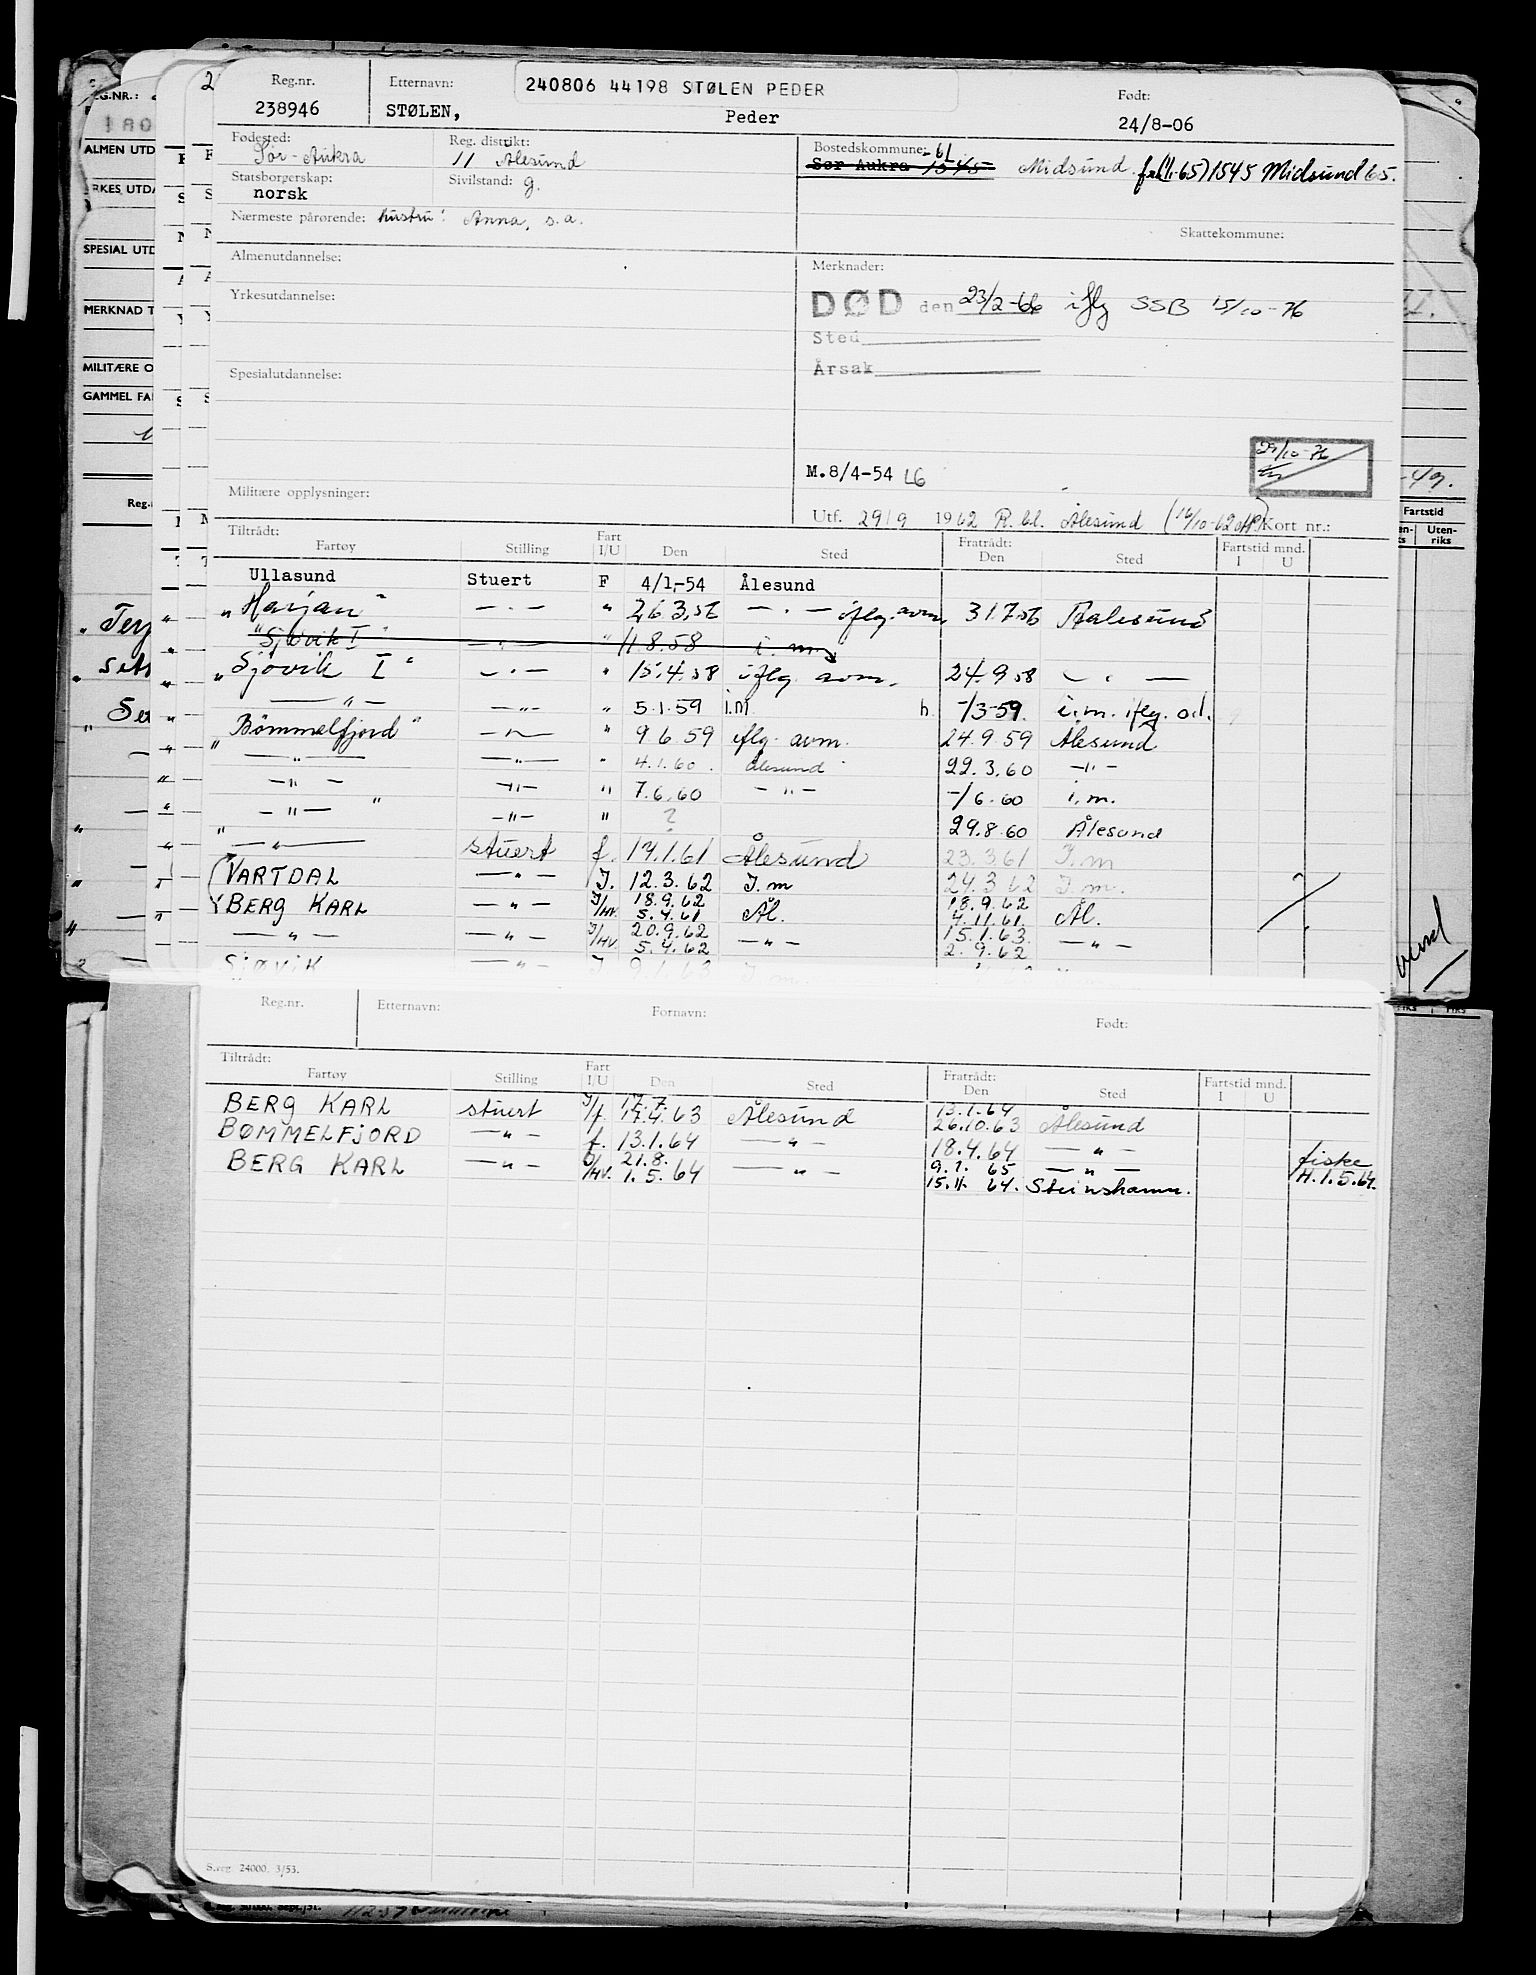 Reg.nr. Etternavn: 240806 44198 STØLEN PEDER Født:
238946 STØLEN, Peder 24/8-06
Fødested: Reg. distrikt: Bostedskommune: -61
Sør-Aukra 11 Ålesund Sør Aukra 1545 Midsund fra(1/1-65) 1545 Midsund 65.
Statsborgerskap: Sivilstand: g.
norsk
Nærmeste pårørende: hustru: Anna, s.a.
Skattekommune:
Almenutdannelse: Merknader:
Yrkesutdannelse: DØD den 23/2-66 iflg SSB 15/10-76
Sted
Årsak
Spesialutdannelse:
29/10-76
M.8/4-54 L6
Militære opplysninger:
Utf. 29/9 1962 R.bl. Ålesund (16/10-62 Kort nr.:
Tiltrådt: Fart Fratrådt: Fartstid mnd.
Fartøy Stilling I/U Den Sted Den Sted I U
Ullasund Stuert F 4/1-54 Ålesund
"Harjan" — " — " 26.3.56 — " — iflg. avm. 31.7.56 Aalesund
"Sjøvik I" — " — " 11.8.58 i.m.
"Sjövik I" — " — " 15.4.58 iflg. avm. 24.9.58 — " —
— " — — " — " 5.1.59 i.m. h. -/3-59. i.m. iflg. o.d.
"Bömmelfjord" — " — " 9.6.59 iflg. avm. 24.9.59 Ålesund
— " — — " — " 4.1.60. Ålesund 22.3.60 — " —
— " — — " — " 7.6.60 — " — -/6.60 i.m.
— " — — " — " ? 29.8.60 Ålesund
— " — stuert f. 17.1.61 Ålesund 23.3.61 I.m
VARTDAL — " — I. 12.3.62 I.m 24.3.62 I.m.
BERG KARL — " — I/HV. 18.9.62 5.4.61 Ål. 18.9.62 4.11.61 Ål.
— " — — " — I/HV. 20.9.62 5.4.62 — " — 15.1.63. 2.9.62 — " —
SJØVIK — " — I 9.1.63 I.m
Reg.nr. Etternavn: Fornavn: Født:
Tiltrådt: Fart Fratrådt: Fartstid mnd.
Fartøy Stilling I/U Den Sted Den Sted I U
BERG KARL stuert I/f. 17.7. 17.4.63 Ålesund 13.1.64 26.10.63 Ålesund
BØMMELFJORD — " — f. 13.1.64 — " — 18.4.64 — " —
BERG KARL — " — I/HV. 21.8. 1.5.64 — " — 9.1.65 — " — fiske
15.11.64. Steinshamn. H.1.5.64.
S.reg. 24000. 3/53.
REG.NR.:
ALMEN UTD
YRKES UTDA
SPESIAL UTD
MERKNAD T
MILITÆRE O
GAMMEL FA
Reg.
-49.
Fartstid
Uten-
riks